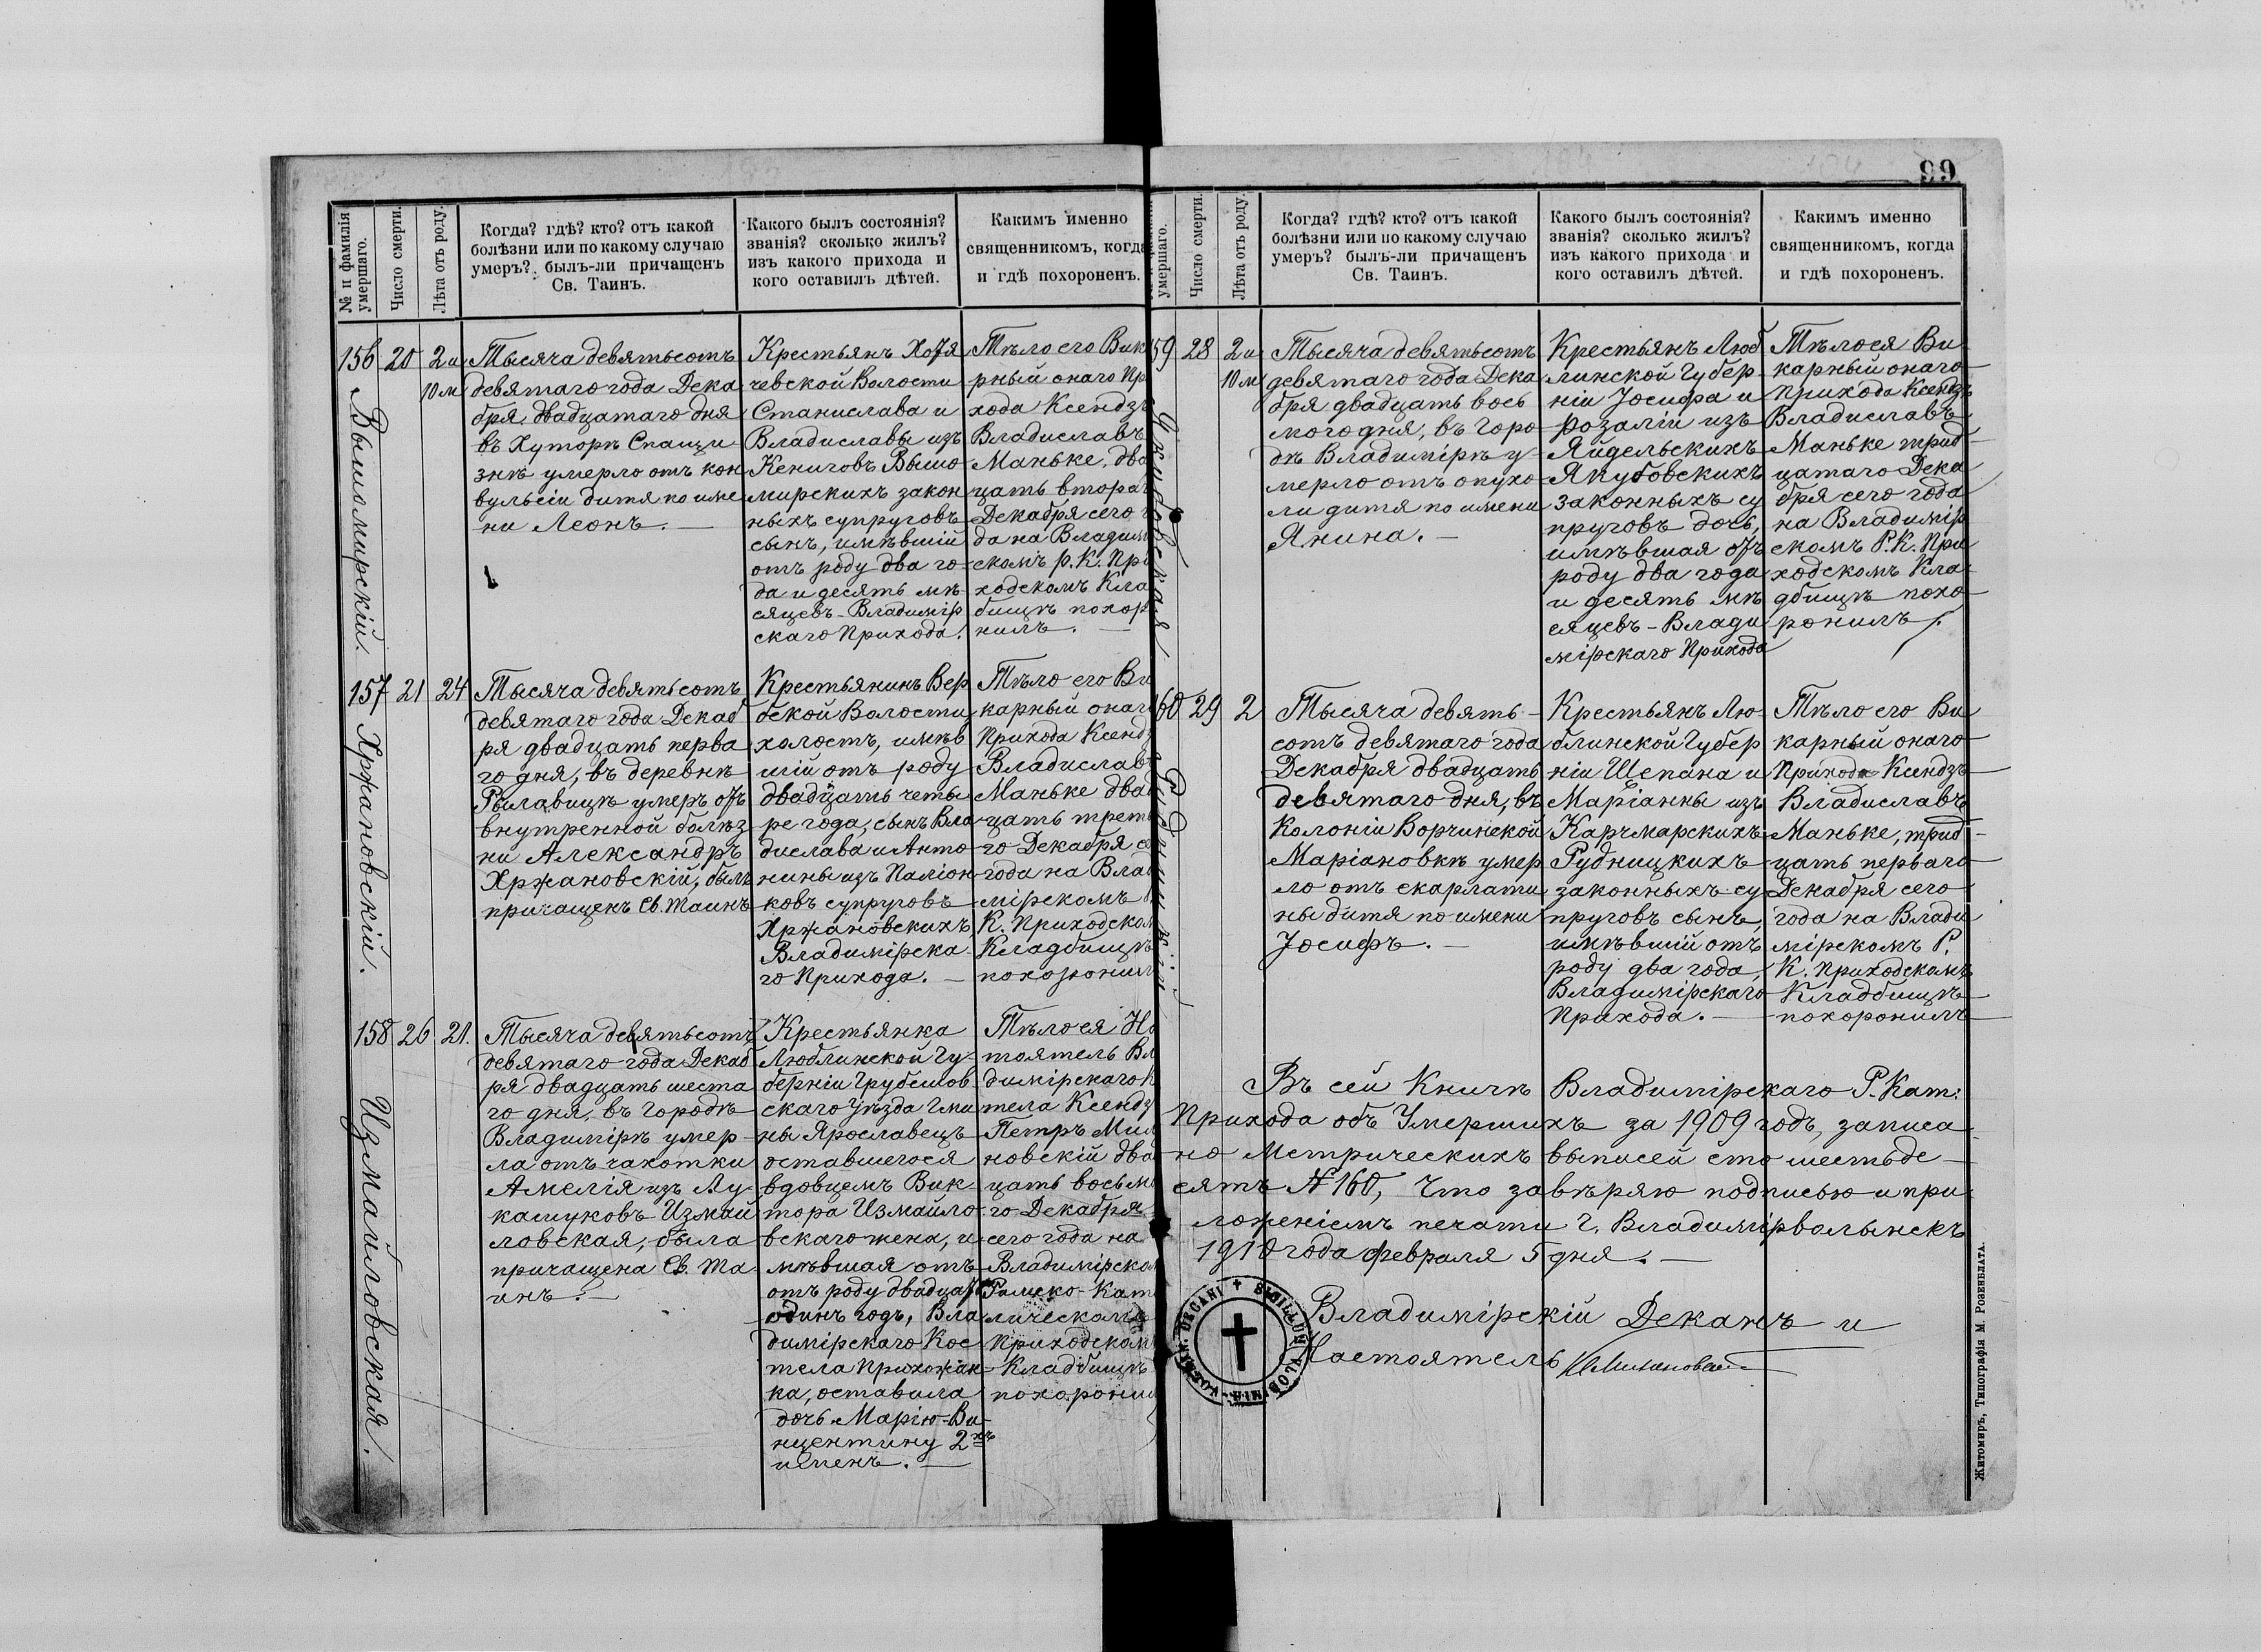 99
№ и фамилія умершаго.
Число смерти.
Лѣта отъ роду.
Когда? гдѣ? кто? отъ какой
болѣзни или по какому случаю
умеръ? былъ-ли причащенъ
Св. Таинъ.
Какого былъ состоянія?
званія? сколько жилъ?
изъ какого прихода и
кого оставилъ дѣтей.
Какимъ именно
священникомъ, когда
и гдѣ похороненъ.
156
Вышомирскій.
20
2 и
10 м
Тысяча девятьсотъ
девятаго года Дека
бря двадцатаго дня
въ Хуторѣ Спащи
знѣ умерло отъ кон
вульсіи дитя по име
ни Леонъ. —
Крестьянъ Хотя
чевской Волости
Станислава и
Владиславы изъ
Кениговъ Вышо
мирскихъ закон
ныхъ супруговъ
сынъ, имѣвшій
отъ роду два го
да и десять мѣ
сяцевъ - Владимір
скаго Прихода.
Тѣло его Вик
рный онаго Пр
хода Ксендз
Владиславъ
Маньке, два
цать втора
Декабря сего
да на Владим
скомъ Р. К. При
ходскомъ Кла
бищѣ похор
нилъ. —
157
Хржановскій.
21
24
Тысяча девятьсотъ
девятаго года Декаб
ря двадцать перва
го дня, въ деревнѣ
Рылавицѣ умеръ отъ
внутренной болѣз
ни Александръ
Хржановскій, былъ
причащенъ Св. Таинъ
Крестьянинъ Вер
бской Волости,
холостъ, имѣв
шій отъ роду
двадцать четы
ре года, сынъ Вла
дислава и Анто
нины изъ Паліон
ковъ супруговъ
Хржановскихъ,
Владимірска
го Прихода. —
Тѣло его Ви
карный онаг
Прихода Ксендз
Владиславъ
Маньке двад
цать треть
го Декабря се
года на Влад
мірскомъ Р.
К. Приходском
Кладбищѣ
похоронил
158
Измайловская.
26
21.
Тысяча девятьсотъ
девятаго года Декаб
ря двадцать шеста
го дня, въ Городѣ
Владимірѣ умер
ла отъ чахотки
Амелія изъ Лу
кашуковъ Измай
ловская, была
причащена Св. Та
инъ. —
Крестьянка
Люблинской Гу
берніи Грубешов
скаго Уѣзда Гми
ны Ярославецъ
оставшегося
вдовцемъ Вик
тора Измайло
вскаго жена, и
мѣвшая отъ
отъ роду двадцать
одинъ годъ, Вла
димірскаго Кос
тела Прихожан
ка, оставила
дочь Марію-Ви
нцентину 2хъ
именъ. —
Тѣло ея На
тоятель Вла
димірскаго К
тела Ксендз
Петръ Мил
новскій два
цать восьм
го Декабря
сего года на
Владимірско
Римско-Кат
лическомъ
Приходском
Кладбищѣ
похоронил
№ и фамилія умершаго.
Число смерти.
Лѣта отъ роду.
Когда? гдѣ? кто? отъ какой
болѣзни или по какому случаю
умеръ? былъ-ли причащенъ
Св. Таинъ.
Какого былъ состоянія?
званія? сколько жилъ?
изъ какого прихода и
кого оставилъ дѣтей.
Какимъ именно
священникомъ, когда
и гдѣ похороненъ.
159
Якубовская
28
2 и
10 м
Тысяча девятьсотъ
девятаго года Дека
бря двадцать вось
мого дня, въ Горо
дѣ Владимірѣ у
мерло отъ опухо
ли дитя по имени
Янина. —
Крестьянъ Люб
линской Губер
ніи Іосифа и
Розаліи изъ
Яйдельскихъ
Якубовскихъ
законныхъ су
пруговъ дочь,
имѣвшая отъ
роду два года
и десять мѣ
сяцевъ - Влади
мірскаго Прихода
Тѣло ея Ви
карный онаго
Прихода Ксендзъ
Владиславъ
Маньке трид
цатаго Дека
бря сего года
на Владимір
скомъ Р. К. При
ходскомъ Кла
дбищѣ похо
ронилъ.
160
Рудницкій
29
2
Тысяча девять
сотъ девятаго года
Декабря двадцать
девятаго дня, въ
Колоніи Ворчинской
Маріановкѣ умер
ло отъ скарлати
ны дитя по имени
Іосифъ. —
Крестьянъ Лю
блинской Губер
ніи Щепана и
Маріанны изъ
Карчмарскихъ
Рудницкихъ
законныхъ су
пруговъ сынъ,
имѣвшій отъ
роду два года,
Владимірскаго
Прихода. —
Тѣло его Ви
карный онаго
Прихода Ксендзъ
Владиславъ
Маньке, трид
цать перваго
Декабря сего
года на Влади
мірскомъ Р.
К. Приходскомъ
Кладбищѣ
похоронилъ
Въ сей Книгѣ Владимірскаго Р. Кат:
Прихода объ Умершихъ за 1909 годъ, записа
но Метрическихъ выписей сто шестьде
сятъ № 160, Что завѣряю подписью и при
ложеніемъ печати г. Владимірволынскъ
1910 года февраля 5 дня. —
Владимірскій Деканъ и
Настоятель
Житомиръ, Типографія М. Розенблата.